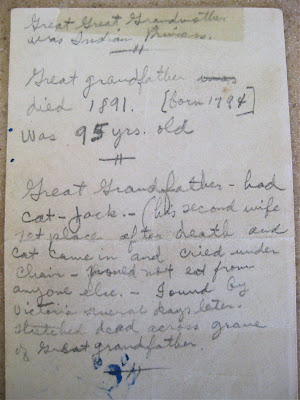 Great Great Grandmother
was Indian Princess.
Great grandfather was
died 1891. [born 1794]
was 95 yrs. old
Great Grandfather - had
cat - Jack. - (his second wife
1st place after death and
cat came in and cried under
chair - would not eat from
anyone else. - Found by
Victoria several days later.
stretched dead across grave
of Great grandfather.